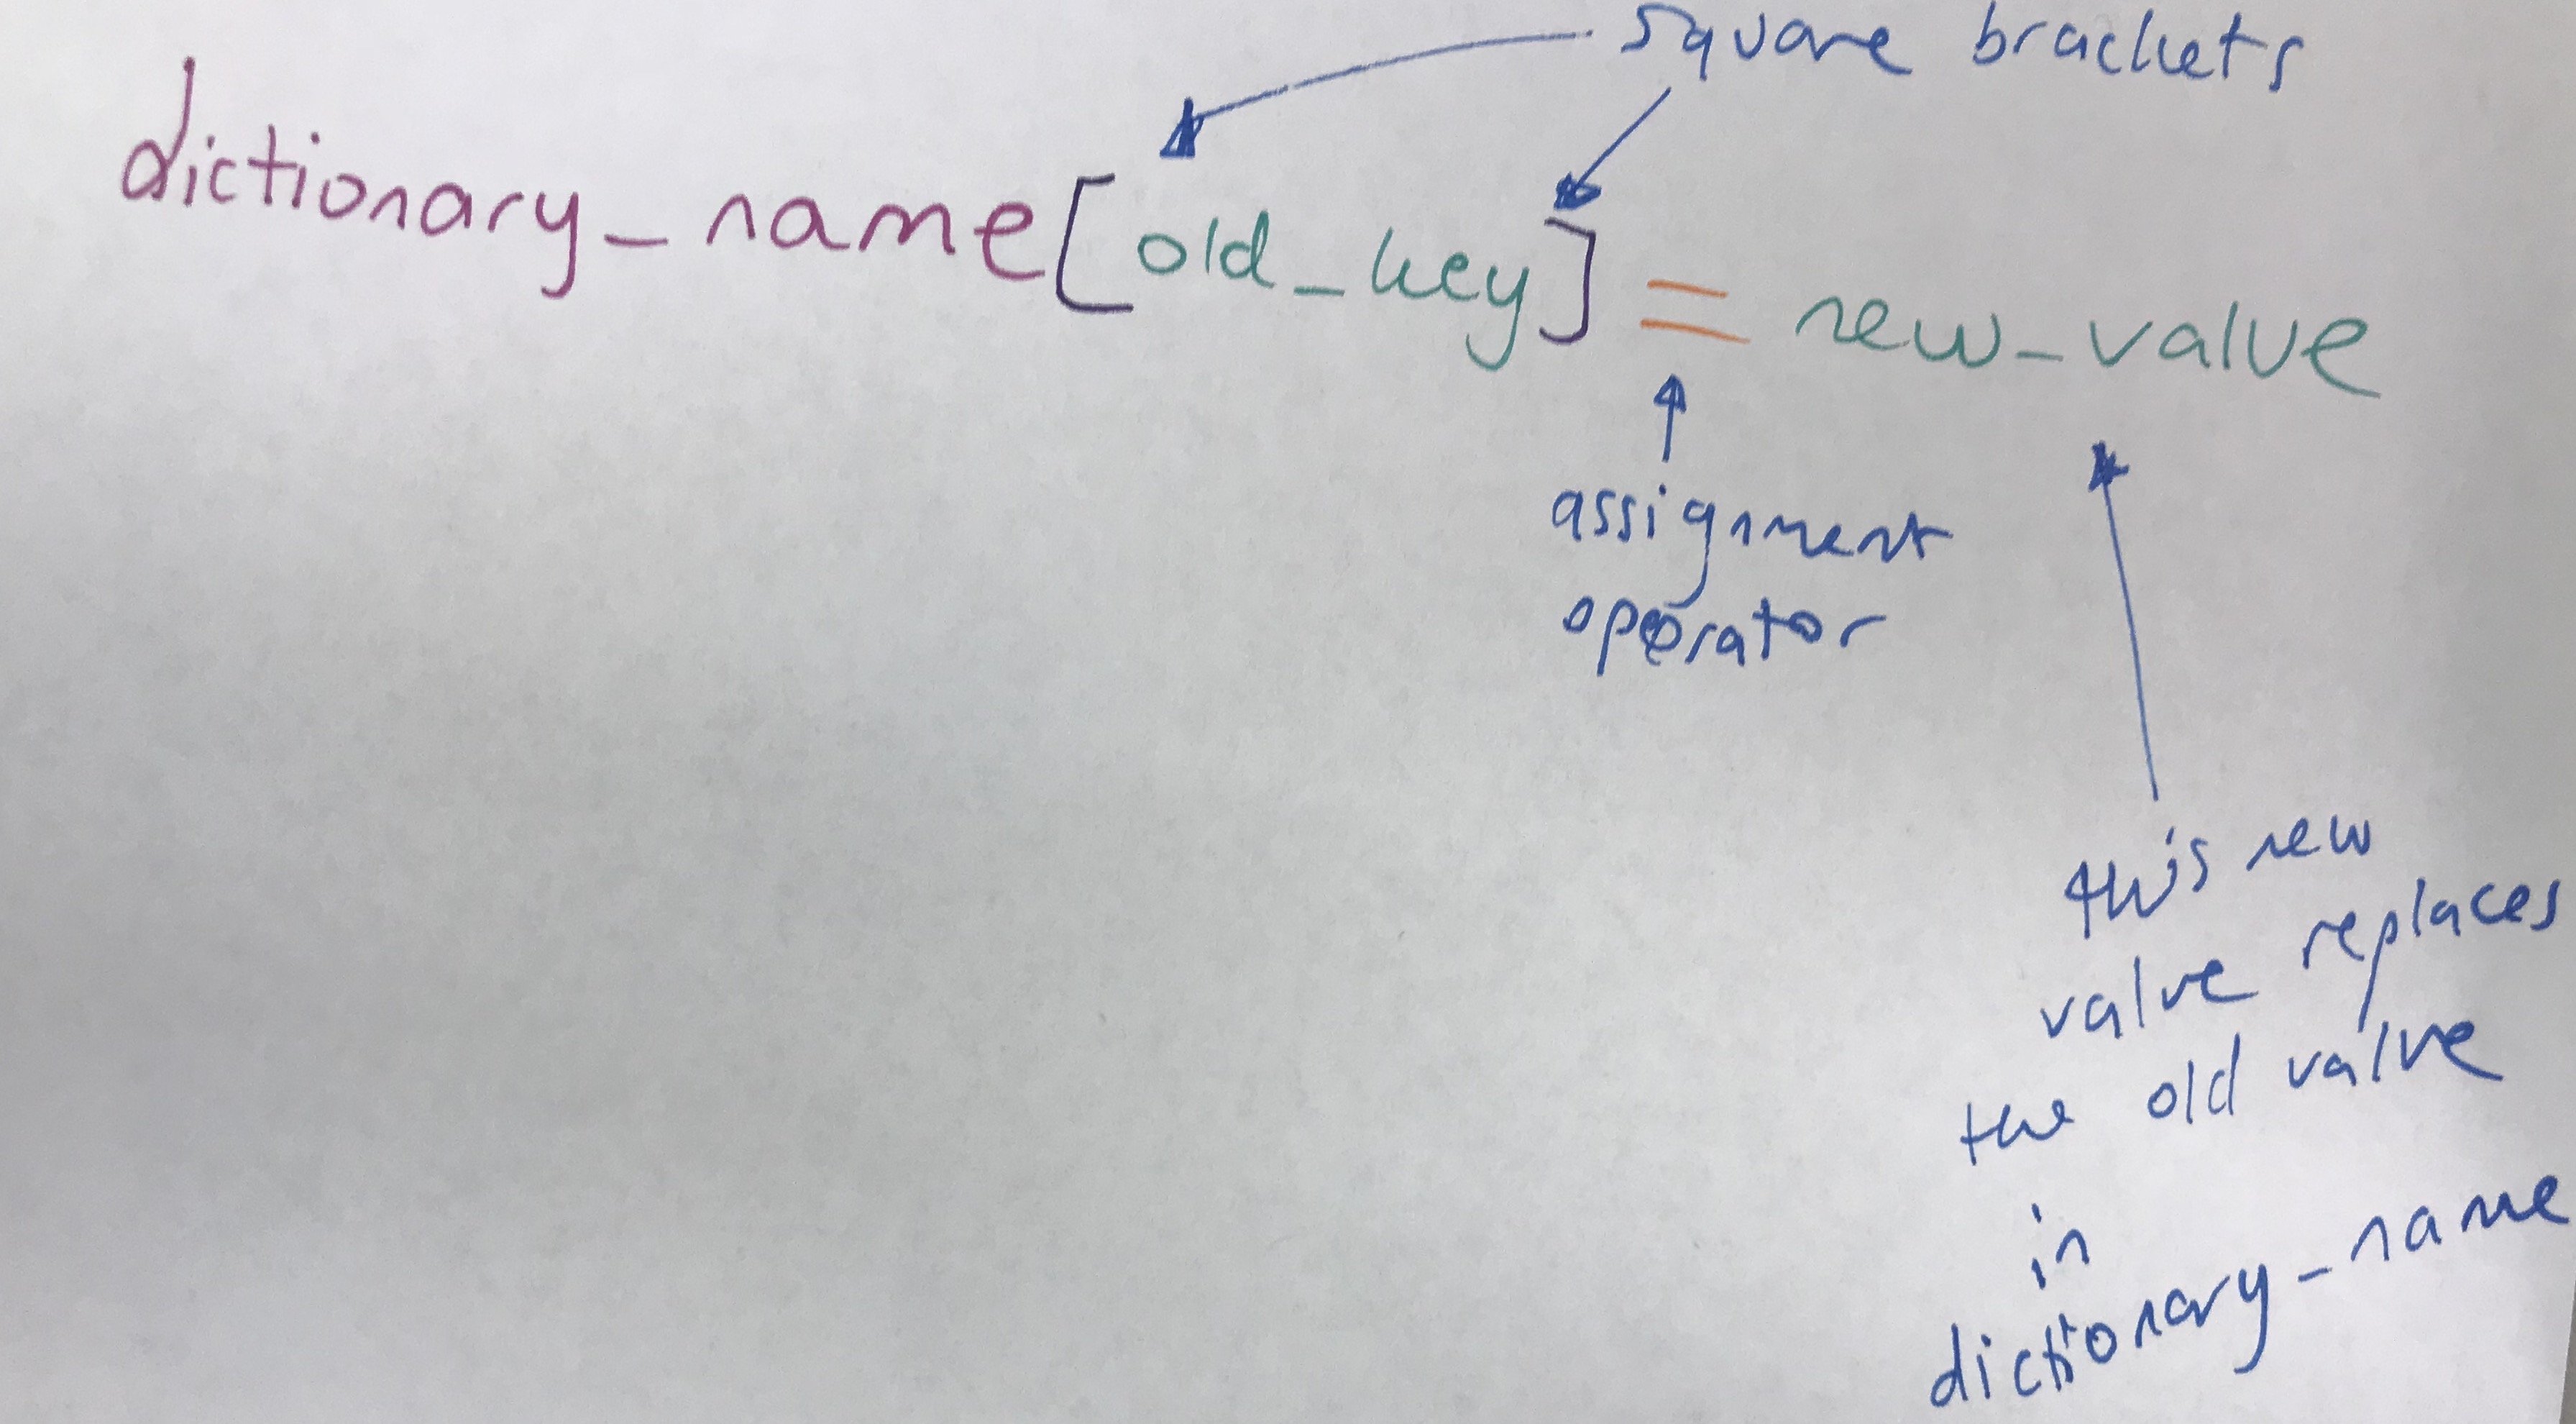 square brackets
dictionary_name[old_key] = new_value
assignment
operator
this new
value replaces
the old value
in
dictionary_name